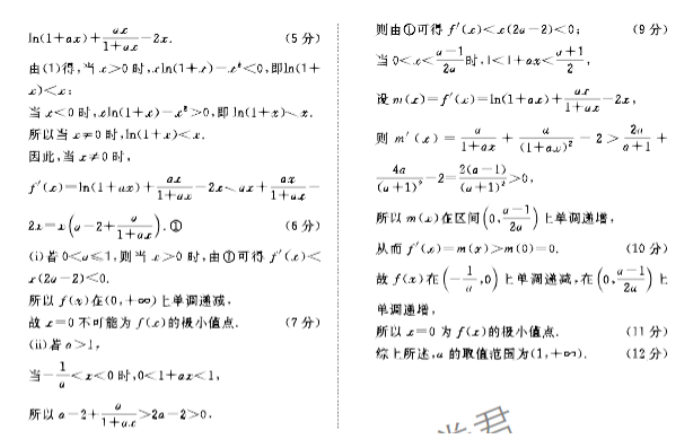 ln(1+ax)+\frac{ax}{1+ax}-2x. (5分)
由(1)得,当x>0时,xln(1+x)-x²<0,即ln(1+
x)<x;
当x<0时,xln(1+x)-x²>0,即ln(1+x)<x.
所以当x≠0时,ln(1+x)<x.
因此,当x≠0时,
f′(x)=ln(1+ax)+\frac{ax}{1+ax}-2x<ax+\frac{ax}{1+ax}-
2x=x(a-2+\frac{a}{1+ax}).① (6分)
(i)若0<a≤1,则当x>0时,由①可得f′(x)<
x(2a-2)<0.
所以f(x)在(0,+∞)上单调递减,
故x=0不可能为f(x)的极小值点. (7分)
(ii)若a>1,
当-\frac{1}{a}<x<0时,0<1+ax<1,
所以a-2+\frac{a}{1+ax}>2a-2>0,
则由①可得f′(x)<x(2a-2)<0; (9分)
当0<x<\frac{a-1}{2a}时,1<1+ax<\frac{a+1}{2},
设m(x)=f′(x)=ln(1+ax)+\frac{ax}{1+ax}-2x,
则m′(x)=\frac{a}{1+ax}+\frac{a}{(1+ax)²}-2>\frac{2a}{a+1}+
\frac{4a}{(a+1)²}-2=\frac{2(a-1)}{(a+1)²}>0,
所以m(x)在区间(0,\frac{a-1}{2a})上单调递增,
从而f′(x)=m(x)>m(0)=0. (10分)
故f(x)在(-\frac{1}{a},0)上单调递减,在(0,\frac{a-1}{2a})上
单调递增,
所以x=0为f(x)的极小值点. (11分)
综上所述,a的取值范围为(1,+∞). (12分)